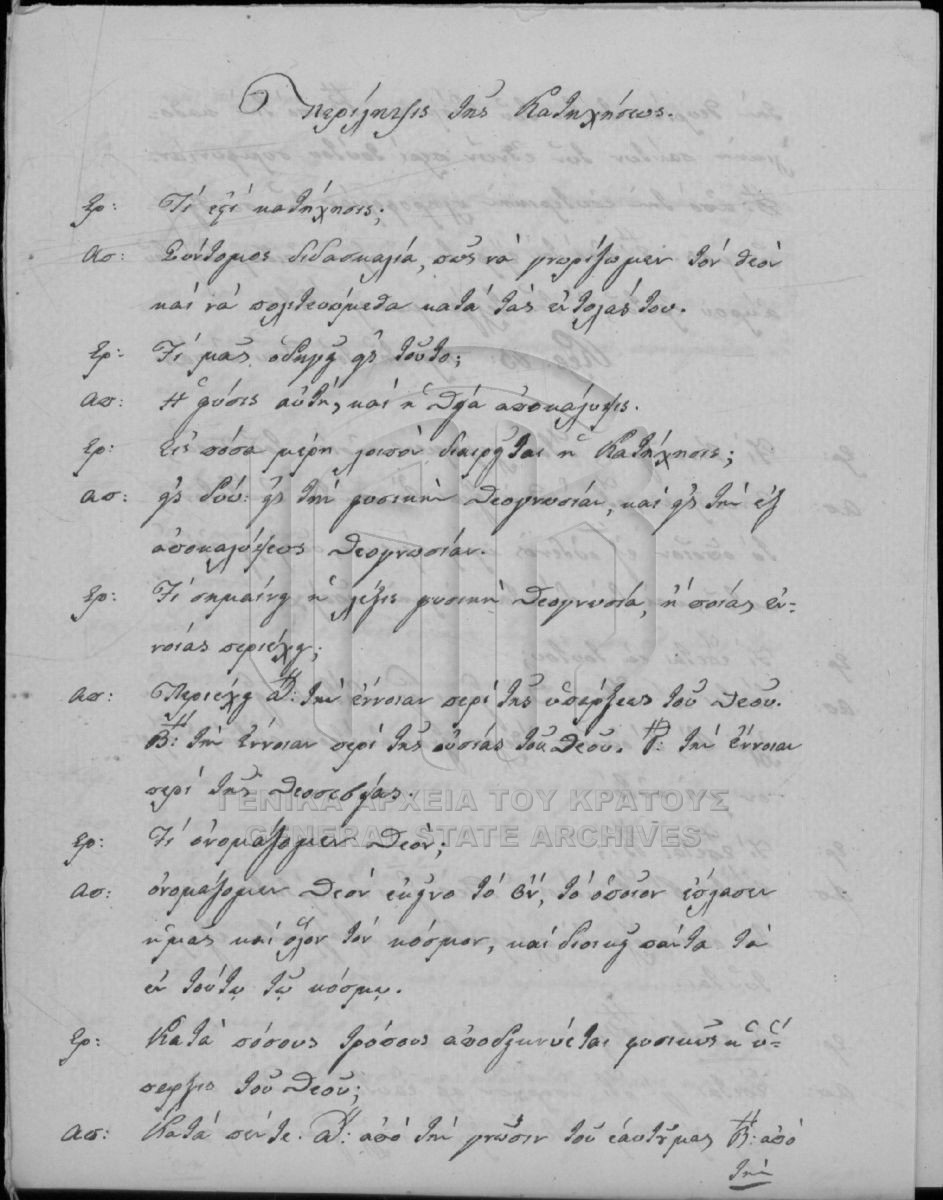 Περίληψις τῆς Κατηχήσεως.
Ερ: Τί ἐστί κατήχησις;
Απ: Σύντομος διδασκαλία, πῶς νὰ γνωρίζωμεν τόν θεόν
καί νά πολιτευώμεθα κατά τάς ἐντολάς του.
Ερ: Τί μᾶς ὁδηγεῖ εἰς τοῦτο;
Απ: Ἡ φύσις αὐτή, καί ἡ θεία ἀποκάλυψις.
Ερ: Εἰς πόσα μέρη λοιπόν διαιρεῖται ἡ Κατήχησις;
Απ: εἰς δύω: εἰς τήν φυσικήν θεογνωσίαν, καί εἰς τήν ἐξ
ἀποκαλύψεως θεογνωσίαν.
Ερ: Τί σημαίνει ἡ λέξις φυσική θεογνωσία, ἤ ποίας ἐν=
νοίας περιέχει;
Απ: Περιέχει α: τήν ἔννοιαν περί τῆς ὑπάρξεως τοῦ Θεοῦ.
Β: τήν ἔννοιαν περί τῆς οὐσίας τοῦ Θεοῦ. Γ: τήν ἔννοιαν
περί τῆς θεοσεβείας.
ΓΕΝΙΚΑ ΑΡΧΕΙΑ ΤΟΥ ΚΡΑΤΟΥΣ
GENERAL STATE ARCHIVES
Ερ: Τί ὀνομάζομεν Θεόν;
Απ: ὀνομάζομεν Θεόν ἐκεῖνο τό ὄν, τό ὁποῖον ἔπλασεν
ἡμᾶς καί ὅλον τόν κόσμον, καί διοικεῖ πάντα τά
ἐν τούτῳ τῷ κόσμῳ.
Ερ: Κατὰ πόσους τρόπους ἀποδεικνύεται φυσικῶς ἡ ὕ=
παρξις τοῦ Θεοῦ;
Απ: Κατά πέντε. α: ἀπό τήν γνῶσιν τοῦ ἑαυτοῦ μας Β: ἀπό
τήν